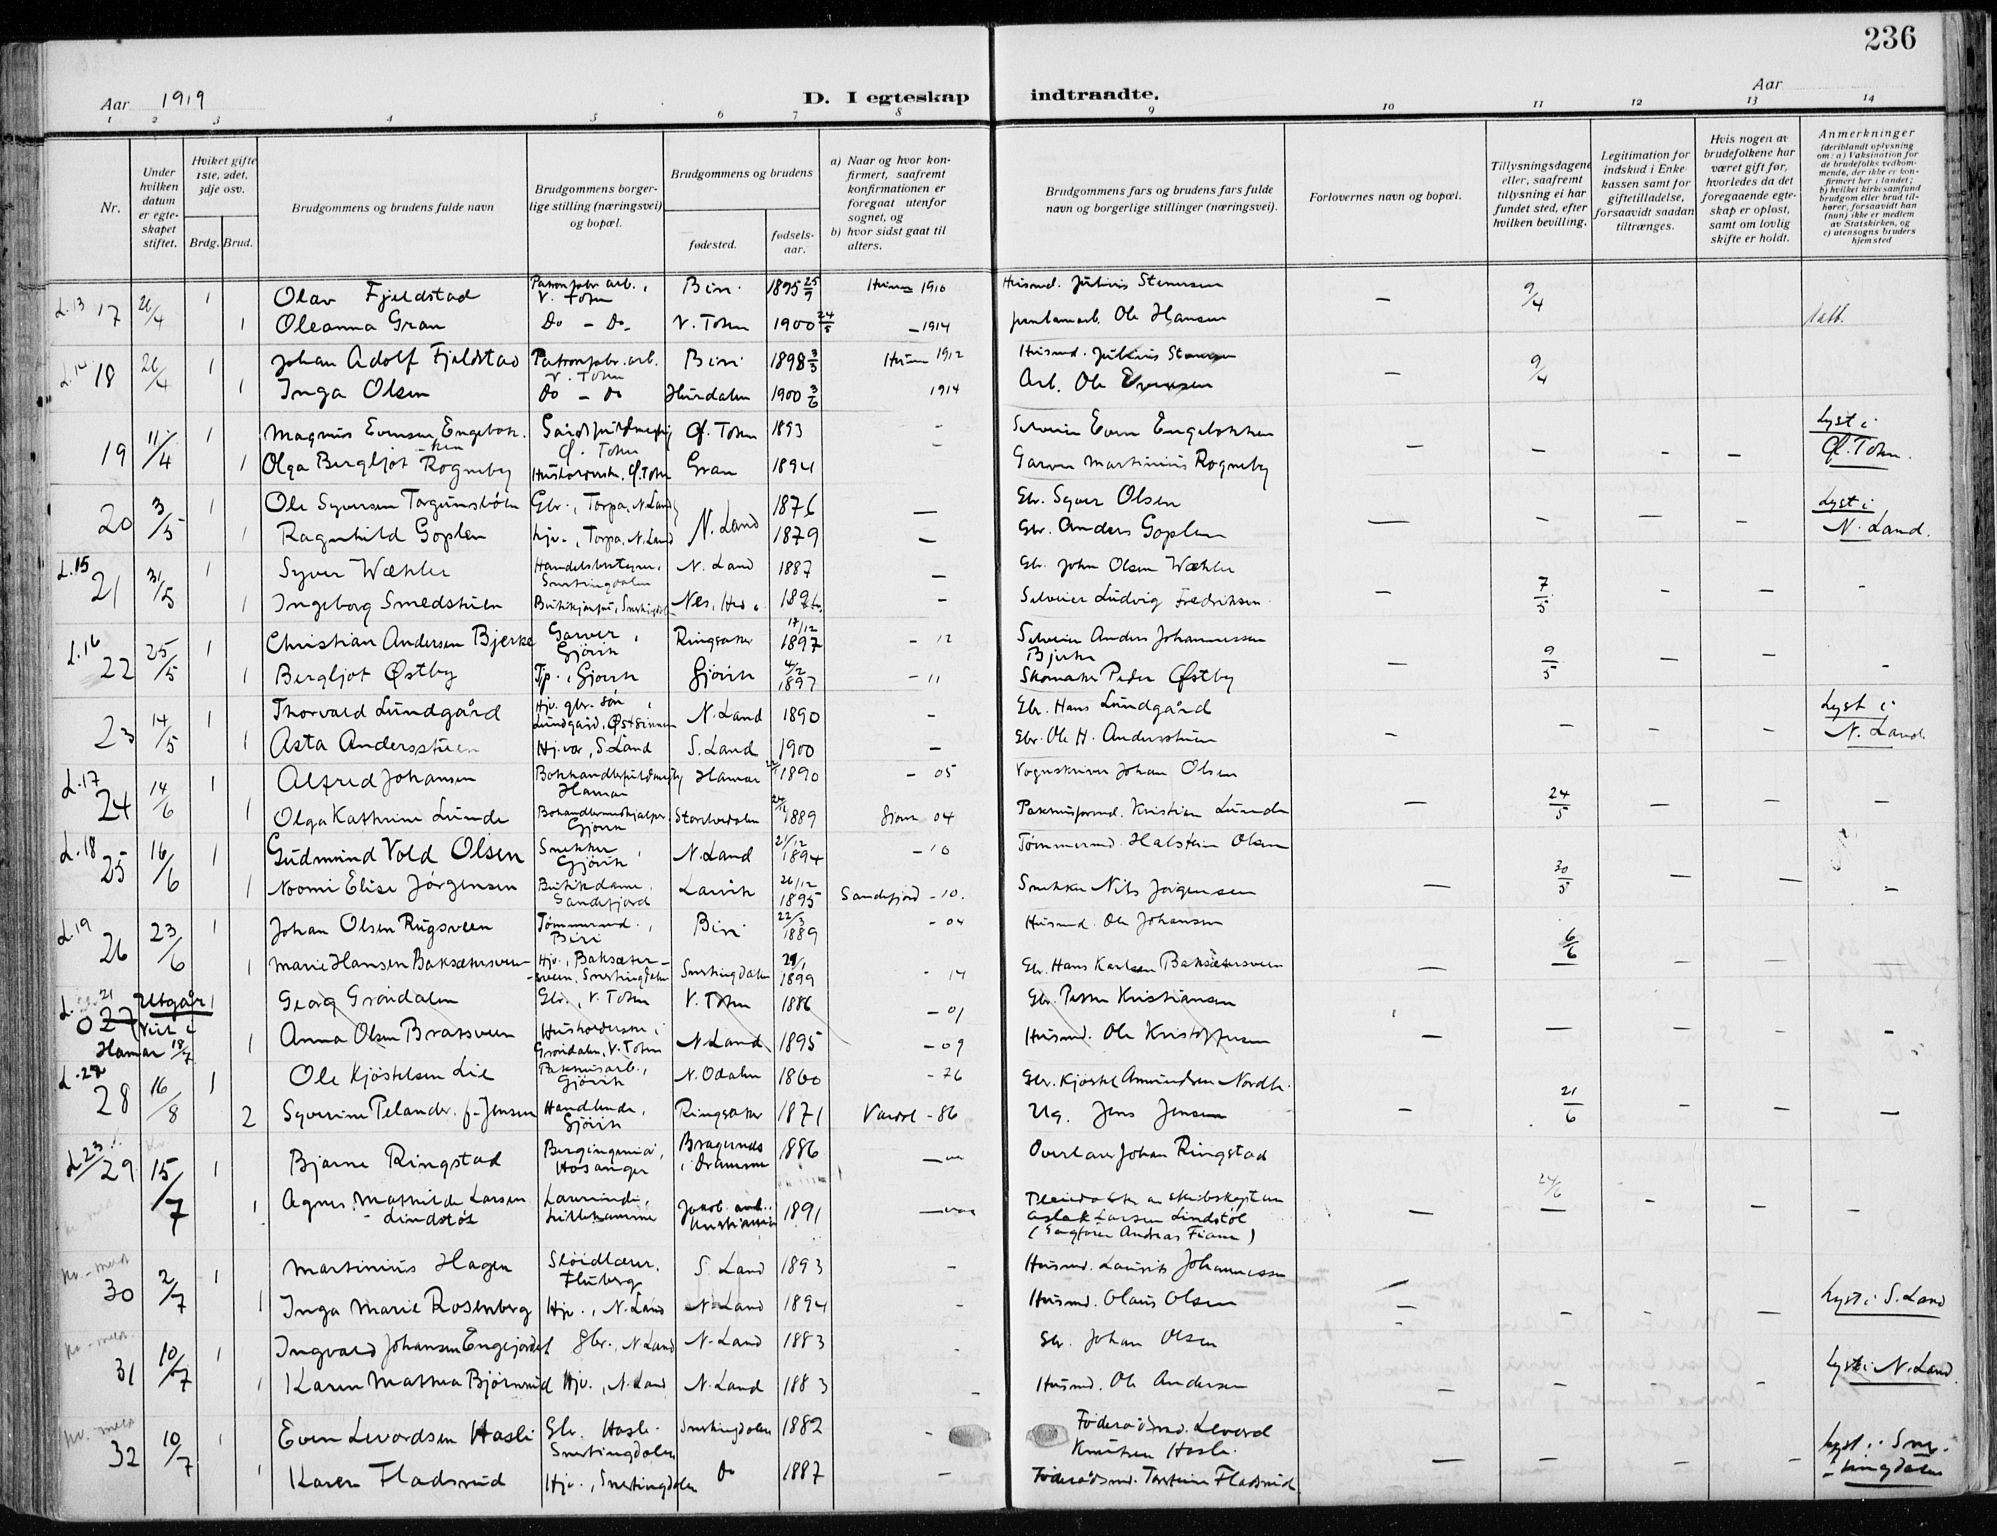 236
Aar 1919
D. I egteskap indtraadte.
Aar
1 2 3 4 5 6 7 8 9 10 11 12 13 14
Nr.
Under hvilken datum er egteskapet stiftet.
Hviket gifte 1ste, 2det, 3dje osv.
Brdg. Brud.
Brudgommens og brudens fulde navn
Brudgommens borgerlige stilling (næringsvei) og bopæl.
Brudgommens og brudens
fødested.
fødselsaar.
a) Naar og hvor konfirmert, saafremt konfirmationen er foregaat utenfor sognet, og
b) hvor sidst gaat til alters.
Brudgommens fars og brudens fars fulde navn og borgerlige stillinger (næringsvei).
Forlovernes navn og bopæl.
Tillysningsdagene eller, saafremt tillysning ei har fundet sted, efter hvilken bevilling.
Legitimation for indskud i Enkekassen samt for giftetilladelse, forsaavidt saadan tiltrænges.
Hvis nogen av brudefolkene har været gift før, hvorledes da det foregaaende egteskap er opløst, samt om lovlig skifte er holdt.
Anmerkninger (deriblandt oplysning om: a) Vaksination for de brudefolks vedkommende, der ikke er konfirmert her i landet; b) hvilket kirkesamfund brudgom eller brud tilhører, forsaavidt han (hun) ikke er medlem av Statskirken, og c) utensogns bruders hjemsted
L.13 17 26/4 1 Olav Fjeldstad Patronfabr. arb., V. Toten Biri 1895 25/9 1910 Husmd. Julius Stenersen — 9/4
1 Oleanna Gran do - do V. Toten 1900 24/5 - 1914 Ole Hansen
18 26/4 1 Johan Adolf Fjeldstad Patronfabr. arb. V. Toten Biri 1898 3/3 1912 Husmd. Julius Stenersen — 9/4
1 Inga Olsen do - do Hurdalen 1900 3/6 1914 Arb. Ole Evensen
19 11/4 1 Magnus Evensen Engebakken Ø. Toten 1893 - Selveier Even Engebakken — — — — Lyst i
1 Olga Bergljot Rogneby Ø. Toten Gran 1894 - Garver Martinius Rogneby Ø. Toten.
20 3/5 1 Ole Syversen Gbr., Torpa, N. Land N. Land 1876 — Gbr. Syver Olsen — — — — Lyst i
1 Ragnhild Goplen Hjv., Torpa, N. Land 1879 — Gbr. Anders Goplen N. Land.
L.15 21 31/5 1 Syver Wæhler Snertingdalen N. Land 1887 — Gbr. John Olsen Wæhler — 7/5 — — -
1 Ingeborg Smedstuen Nes, Hed. - Selveier Ludvig Fredriksen
L.16 22 25/5 1 Christian Andersen Bjerke Garver, Gjøvik Ringsaker 17/12 1897 - 12 Selveier Anders Johannessen Bjerke — 9/5 — — -
1 Bergljot Østby Tjp., Gjøvik Gjøvik 4/2 1897 - 11 Skomaker Peder Østby
23 14/5 1 Thorvald Lundgård Hjv. gbr. søn, Lundgård, Østsinnen N. Land 1890 - Gbr. Hans Lundgård — — — — Lyst i
1 Asta Andersstuen Hjvær, S. Land S. Land 1900 — Gbr. Ole H. Andersstuen N. Land.
L.17 24 14/6 1 Alfred Johansen Hamar Hamar 1890 - 05 Vognskriver Johan Olsen — 24/5 — — —
1 Olga Kathrine Lunde Gjøvik Storelvedalen 1889 04 Pakhusformd. Kristian Lunde
L.18 25 16/6 1 Gudmund Vold Olsen Snekker, Gjøvik N. Land 21/12 1894 - 10 Tømmermd. Halstein Olsen — 30/5 — — —
1 Noomi Elise Jørgensen Butikdame, Sandefjord Larvik 26/12 1895 Sandefjord - 10. Snekker Nils Jørgensen
L.19 26 23/6 1 Johan Olsen Rugsveen Tømmermd., Biri Biri 22/3 1889 - 04 Husmd. Ole Johansen — 6/6 — — —
1 Marie Hansen Baksætersveen Hjv., Baksætersveen, Snertingdalen Snertingdalen 1899 - 14 Gbr. Hans Karlsen Baksætersveen
L. 21 27 Utgår! Viet i Hamar 18/7 Georg Grøndalen Gbr., V. Toten V. Toten 1886 - 01 Gbr. Petter Kristiansen — — — — -
1 Anna Olsen Bratsveen Husholderske, Grøndalen, V. Toten N. Land 1895 - 09 Husmd. Ole Kristoffersen
28 16/8 1 Ole Kjøstelsen Lie Pakhusarb., Gjøvik N. Odalen 1860 - 76 Gbr. Kjøstel Amundsen — 21/6 — — —
2 Syverine Pelander f. Jensen Handlende, Gjøvik Ringsaker 1871 Vardal - 86 Ug. Jens Jensen
L.23 29 15/7 1 Bjarne Ringstad Bergingeniør, Hosanger Bragernes i Drammen 1886 — Overlærer Johan Ringstad — 24/6 — — -
1 Agnes Mathilde Larsen Lindstøl Lærerinde, Lillehammer 1891 — Aslak Larsen Lindstøl
30 2/7 1 Martinius Hagen Sløidlærer, Fluberg S. Land 1893 - Husmd. Laurits Johannessen — — — —
1 Inga Marie Rosenberg Hjv., N. Land N. Land 1894 - Husmd. Olaus Olsen Lyst i S. Land
31 10/7 1 Ingvald Johansen Engejordet Gbr., N. Land N. Land 1883 - Gbr. Johan Olsen — — — — Lyst i N. Land
1 Karen Mathea Bjørnerud Hjv., N. Land N. Land 1883 - Husmd. Ole Andersen
32 10/7 1 Even Levordsen Hasli Gbr. Hasli Snertingdalen Snertingdalen 1882 - Føderådsmd. Levord Knutsen Hasli — — — — Lyst i Snertingdalen
1 Karen Fladsrud Hjv., Snertingdalen do 1887 — Føderådsmd. Torstein Fladsrud